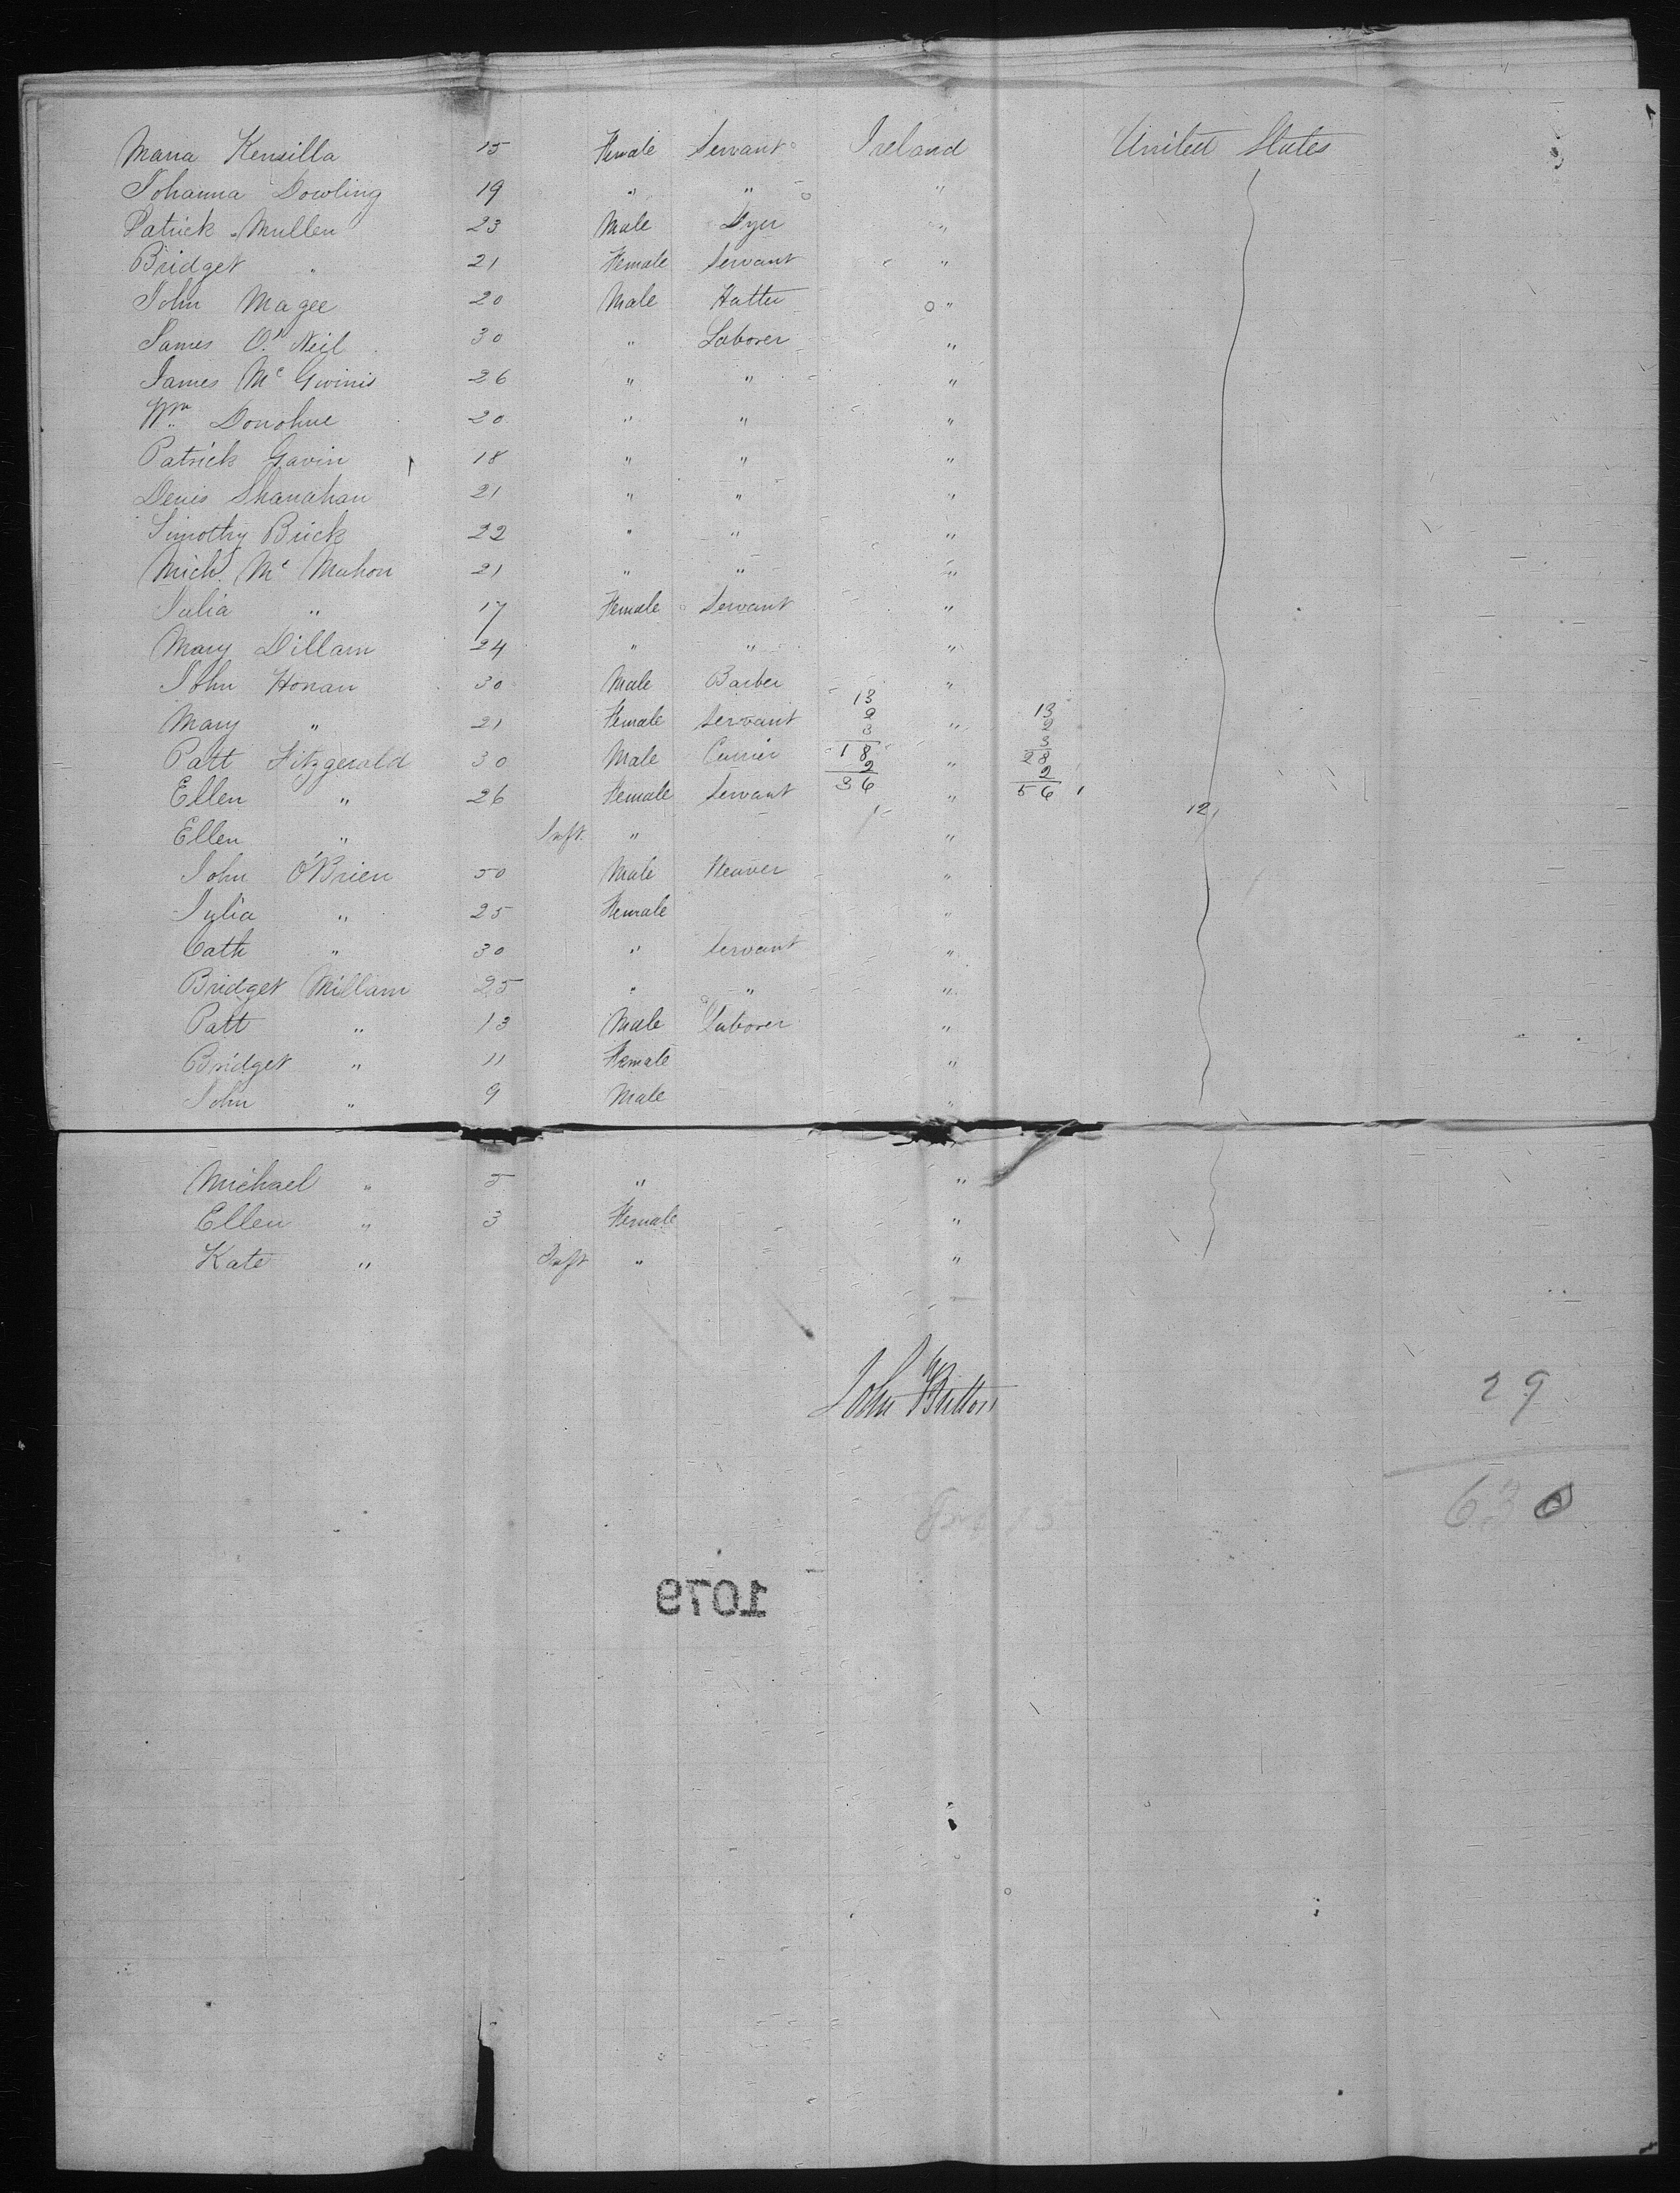 Maria Kensilla 15 Female Servant Ireland United States
Johanna Dowling 19 " " "
Patrick Mullen 23 Male Dyer "
Bridget " 21 Female Servant "
John Magee 20 Male Hatter "
James O'Neil 30 " Laborer "
James Mc Gwinis 26 " " "
Wm Donohue 20 " " "
Patrick Gavin 18 " " "
Denis Shanahan 21 " " "
Timothy Buck 22 " " "
Michl. Mc Mahon 21 " " "
Julia " 17 Female Servant "
Mary Dillam 24 " " "
John Honan 30 Male Barber "
13 13
Mary " 21 Female Servant 2 " 2
3 3
Patt Fitzgerald 30 Male Currier 18 " 28
2 2
Ellen " 26 Female Servant 36 " 56
12
Ellen " Inft. " "
John O'Brien 50 Male Weaver "
Julia " 25 Female "
Cath " 30 " Servant "
Bridget Millam 25 " " "
Patt " 13 Male Laborer "
Bridget " 11 Female "
John " 9 Male "
Michael " 5 " "
Ellen " 3 Female "
Kate " Inft " "
John Britton
29
630
1079